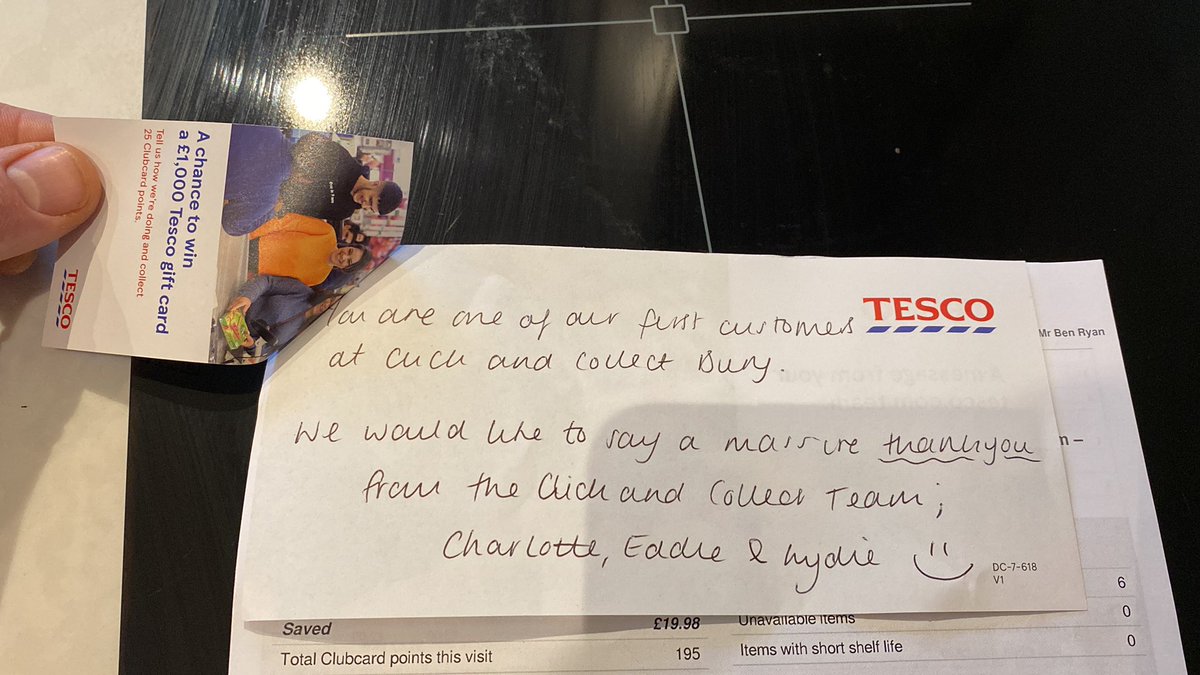 A chance to win
a £1,000 Tesco gift card
Tell us how we're doing and collect
25 Clubcard points.
TESCO
You are one of our first customers
at click and collect Bury.
TESCO
Mr Ben Ryan
We would like to say a massive thankyou
from the Click and Collect Team;
Charlotte, Eddie & Lydie
DC-7-618
V1
6
Saved £19.98
Unavailable items 0
Total Clubcard points this visit 195
Items with short shelf life 0